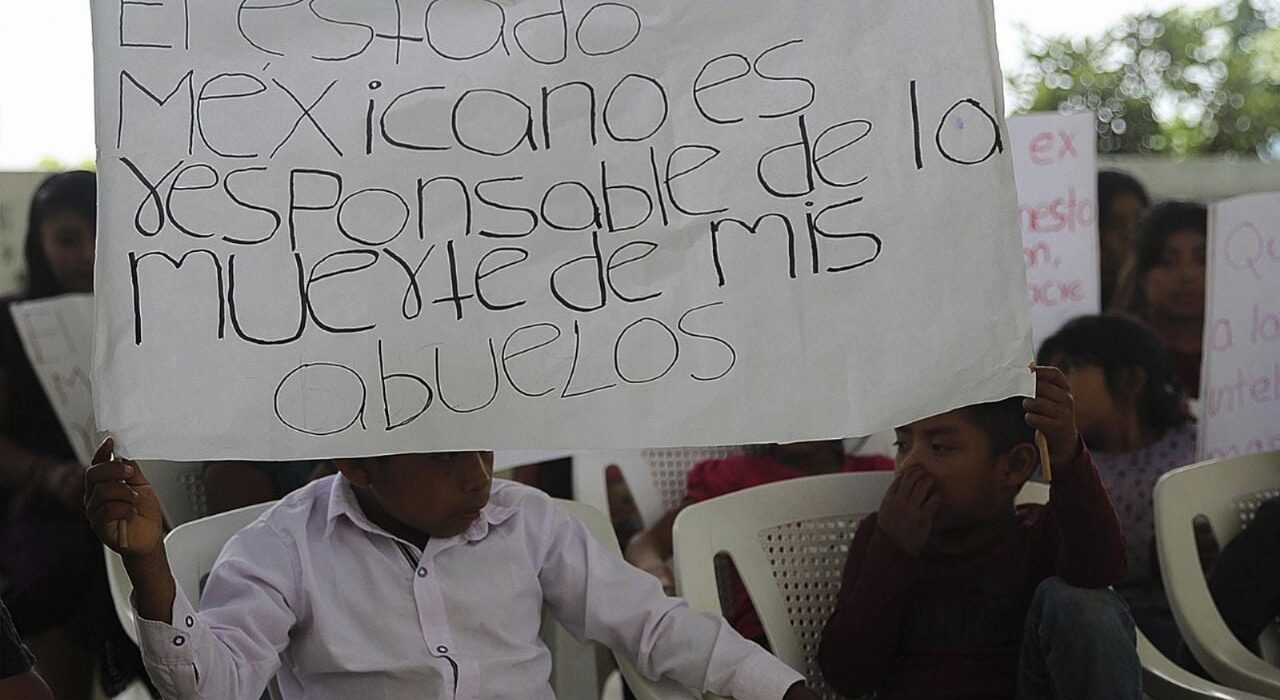 El estado
México es
responsable de la
muerte de mis
abuelos
ex
nesto
ón,
acre
El
M
Qu
a lo
intel
mas